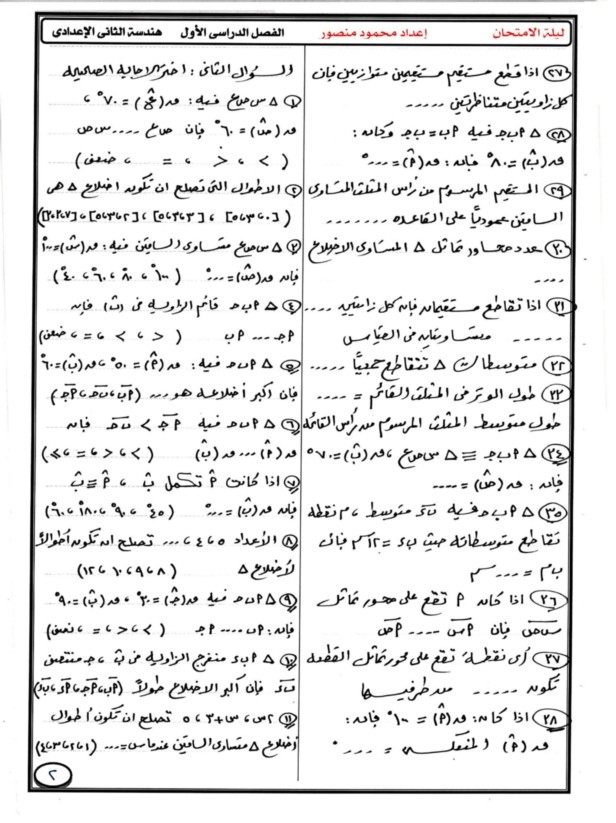 ليلة الامتحان
إعداد محمود منصور
الفصل الدراسى الأول
هندسة الثانى الإعدادى
٢٧ اذا قطع مستقيم مستقيمين متوازيين فإن
كل زاويتين متناظرتين .....
٢٨ △ ‎P‎ب‌جـ فيه ‎P‎ب = ب‌جـ وكان:
ق(بَ) = ٨٠° فإن: ق(‎P‎) = ....°
٢٩ المستقيم المرسوم من رأس المثلث المتساوى
الساقين عمودياً على القاعدة ........
٣٠ عدد محاور تماثل △ المتساوى الاضلاع
....
٣١ اذا تقاطع مستقيمان فإن كل زاويتين ....
..... متساويتان فى القياس
٣٢ متوسطات △ تتقاطع جميعاً .....
٣٣ طول الوتر فى المثلث القائم = ....
طول متوسط المثلث المرسوم من رأس القائمة
٣٤ △ ‎P‎ب‌جـ ≡ △ س ص ع ، ق(ب) = ٧٠°
فإن: ق(ص) = ....
٣٥ △ ‎P‎ب‌جـ فيه بء متوسط ، م نقطة
تقاطع متوسطاته حيث بء = ١٢سم فإن
ب‌م = .... سم
٣٦ اذا كان ‎P‎ تقع على محور تماثل
س‌ص فإن ‎P‎س .... ‎P‎ص
٣٧ أى نقطة تقع على محور تماثل القطعة
تكون ..... من طرفيها
٣٨ اذا كان: ق(‎P‎) = ١٠٠° فإن:
ق(‎P‎) المنعكسة = ....°
السؤال الثانى: اختر الاجابة الصحيحة
١ △ س ص ع فيه: ق(ع) = ٧٠° ،
ق(ص) = ٦٠° فإن ص‌ع .... س‌ص
( > ، < ، = ، ضعف)
٢ الاطوال التى تصلح ان تكون اضلاع △ هى
٣ △ س ص ع متساوى الساقين فيه: ق(س) = ١٠٠°
فإن ق(ص) = ....° (١٠٠° ، ٨٠° ، ٦٠° ، ٤٠°)
٤ △ ‎P‎ب‌جـ قائم الزاوية فى (ب) فإن
‎P‎جـ .... ‎P‎ب ( < ، > ، = ، ضعف)
٥ △ ‎P‎ب‌جـ فيه: ق(‎P‎) = ٥٠° ، ق(ب) = ٦٠°
فإن اكبر أضلاعه هو ... (‎P‎ب ، ب‌جـ ، ‎P‎جـ)
٦ △ ‎P‎ب‌جـ فيه ‎P‎جـ > ب‌جـ فإن
ق(‎P‎) .... ق(ب)
٧ إذا كانت ‎P‎ تكمل ب ، ‎P‎ ≡ ب
فإن ق(ب) = ....° (٤٥° ، ٩٠° ، ١٨٠° ، ٦٠°)
٨ الأعداد ٥ ، ٤ ، .... تصلح ان تكون أطوالاً
لأضلاع △ (٨ ، ٩ ، ١٠ ، ١٢)
٩ △ ‎P‎ب‌جـ فيه ق(جـ) = ٣٠° ، ق(ب) = ٩٠°
فإن: ‎P‎ب .... ‎P‎جـ ( > ، < ، = ، نصف)
١٠ △ ‎P‎بء منفرج الزاوية فى ب ، جـ منتصف
بء فإن أكبر الاضلاع طولاً
١١ ٢س ، س+٣ ، ٥ تصلح ان تكون أطوال
أضلاع △ متساوى الساقين عندما س = ... (١ ، ٢ ، ٣ ، ٤)
٢